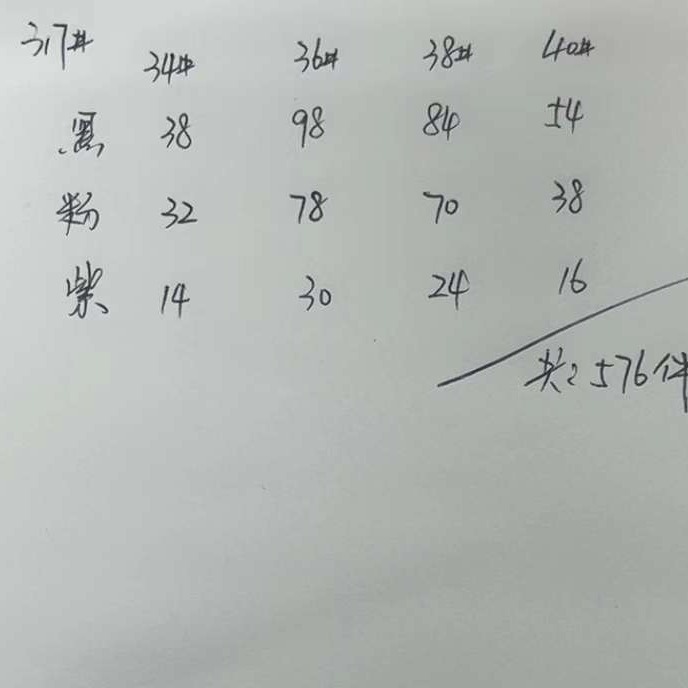 317# 34# 36# 38# 40#
黑 38 98 84 54
粉 32 78 70 38
紫 14 30 24 16
共: 576件